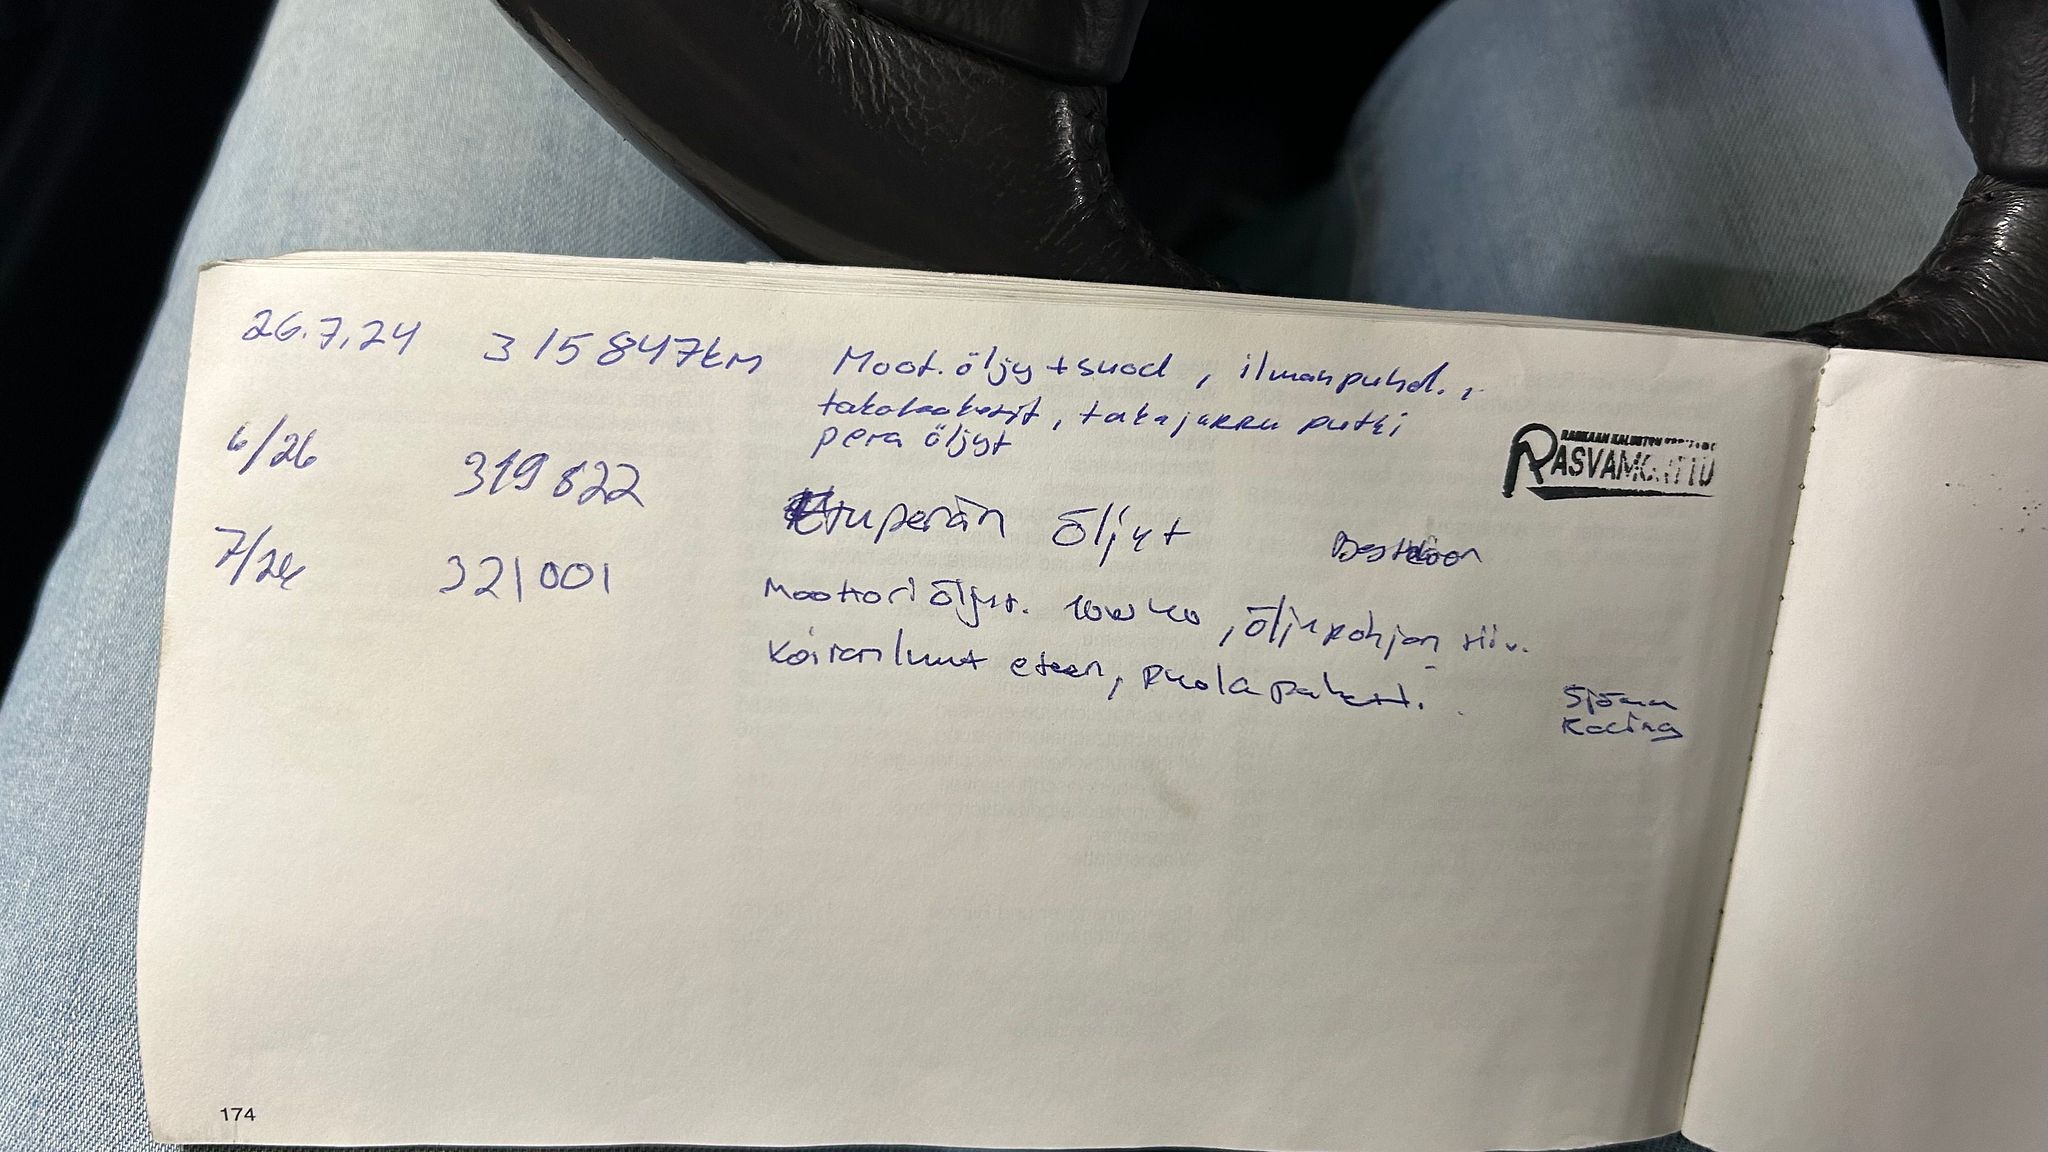 26.7.24 315847km Moot. öljy + suod, ilmanpuhd.,
takalaakerit, takajarru putki
perä öljyt
RASVAMONTTU
6/26 319822 Etuperän öljyt
7/26 321001 Moottoriöljyt. 10w40, öljypohjan tiiv.
Koiranluut eteen, puola paketti.
Sjöman
Racing
174